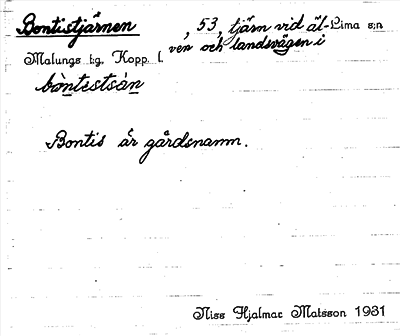 Bontistjärnen, 53, tjärn vid älven och landsvägen i Lima s:n
Malungs t:g, Kopp. l.
bòntestsàn
Bontis är gårdsnamn.
Niss Hjalmar Matsson 1931